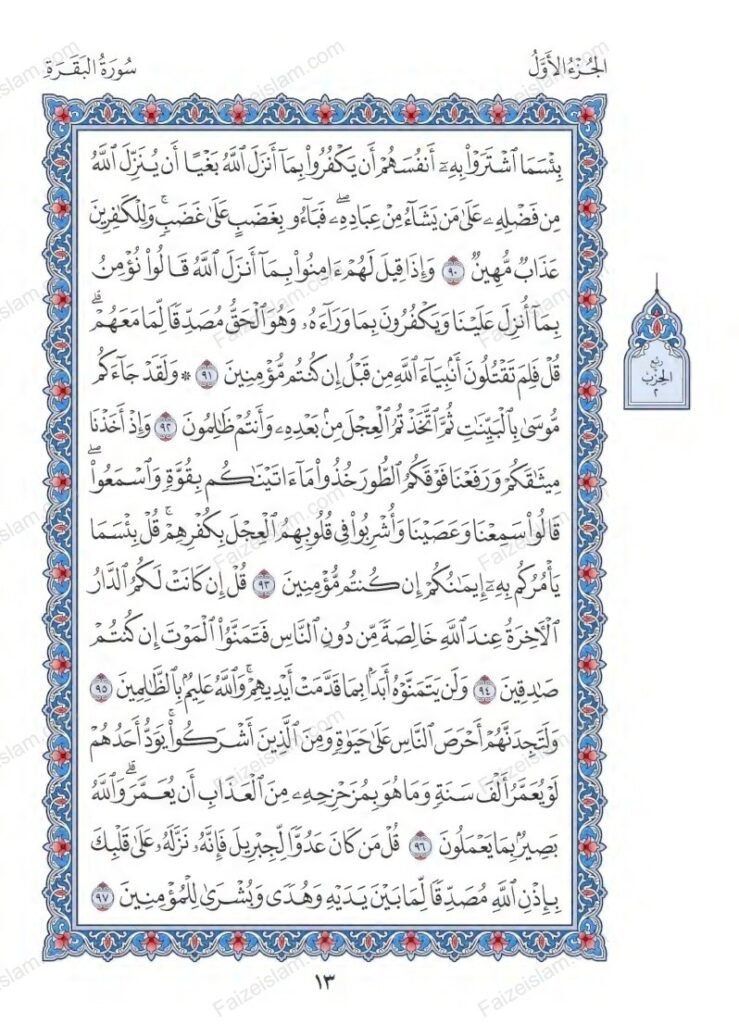 سُورَةُ البَقَرَةِ
الجُزْءُ الأَوَّلُ
بِئْسَمَا ٱشْتَرَوْا۟ بِهِۦٓ أَنفُسَهُمْ أَن يَكْفُرُوا۟ بِمَآ أَنزَلَ ٱللَّهُ بَغْيًا أَن يُنَزِّلَ ٱللَّهُ
مِن فَضْلِهِۦ عَلَىٰ مَن يَشَآءُ مِنْ عِبَادِهِۦۖ فَبَآءُو بِغَضَبٍ عَلَىٰ غَضَبٍۚ وَلِلْكَٰفِرِينَ
عَذَابٌ مُّهِينٌ ٩٠ وَإِذَا قِيلَ لَهُمْ ءَامِنُوا۟ بِمَآ أَنزَلَ ٱللَّهُ قَالُوا۟ نُؤْمِنُ
بِمَآ أُنزِلَ عَلَيْنَا وَيَكْفُرُونَ بِمَا وَرَآءَهُۥ وَهُوَ ٱلْحَقُّ مُصَدِّقًا لِّمَا مَعَهُمْۗ
قُلْ فَلِمَ تَقْتُلُونَ أَنۢبِيَآءَ ٱللَّهِ مِن قَبْلُ إِن كُنتُم مُّؤْمِنِينَ ٩١ ۞ وَلَقَدْ جَآءَكُم
مُّوسَىٰ بِٱلْبَيِّنَٰتِ ثُمَّ ٱتَّخَذْتُمُ ٱلْعِجْلَ مِنۢ بَعْدِهِۦ وَأَنتُمْ ظَٰلِمُونَ ٩٢ وَإِذْ أَخَذْنَا
مِيثَٰقَكُمْ وَرَفَعْنَا فَوْقَكُمُ ٱلطُّورَ خُذُوا۟ مَآ ءَاتَيْنَٰكُم بِقُوَّةٍ وَٱسْمَعُوا۟ۖ
قَالُوا۟ سَمِعْنَا وَعَصَيْنَا وَأُشْرِبُوا۟ فِى قُلُوبِهِمُ ٱلْعِجْلَ بِكُفْرِهِمْۚ قُلْ بِئْسَمَا
يَأْمُرُكُم بِهِۦٓ إِيمَٰنُكُمْ إِن كُنتُم مُّؤْمِنِينَ ٩٣ قُلْ إِن كَانَتْ لَكُمُ ٱلدَّارُ
ٱلْءَاخِرَةُ عِندَ ٱللَّهِ خَالِصَةً مِّن دُونِ ٱلنَّاسِ فَتَمَنَّوُا۟ ٱلْمَوْتَ إِن كُنتُمْ
صَٰدِقِينَ ٩٤ وَلَن يَتَمَنَّوْهُ أَبَدًۢا بِمَا قَدَّمَتْ أَيْدِيهِمْۚ وَٱللَّهُ عَلِيمٌۢ بِٱلظَّٰلِمِينَ ٩٥
وَلَتَجِدَنَّهُمْ أَحْرَصَ ٱلنَّاسِ عَلَىٰ حَيَوٰةٍ وَمِنَ ٱلَّذِينَ أَشْرَكُوا۟ۚ يَوَدُّ أَحَدُهُمْ
لَوْ يُعَمَّرُ أَلْفَ سَنَةٍ وَمَا هُوَ بِمُزَحْزِحِهِۦ مِنَ ٱلْعَذَابِ أَن يُعَمَّرَۗ وَٱللَّهُ
بَصِيرٌۢ بِمَا يَعْمَلُونَ ٩٦ قُلْ مَن كَانَ عَدُوًّا لِّجِبْرِيلَ فَإِنَّهُۥ نَزَّلَهُۥ عَلَىٰ قَلْبِكَ
بِإِذْنِ ٱللَّهِ مُصَدِّقًا لِّمَا بَيْنَ يَدَيْهِ وَهُدًى وَبُشْرَىٰ لِلْمُؤْمِنِينَ ٩٧
رُبْع
الحِزْبْ
٢
١٣
Faizeislam.com